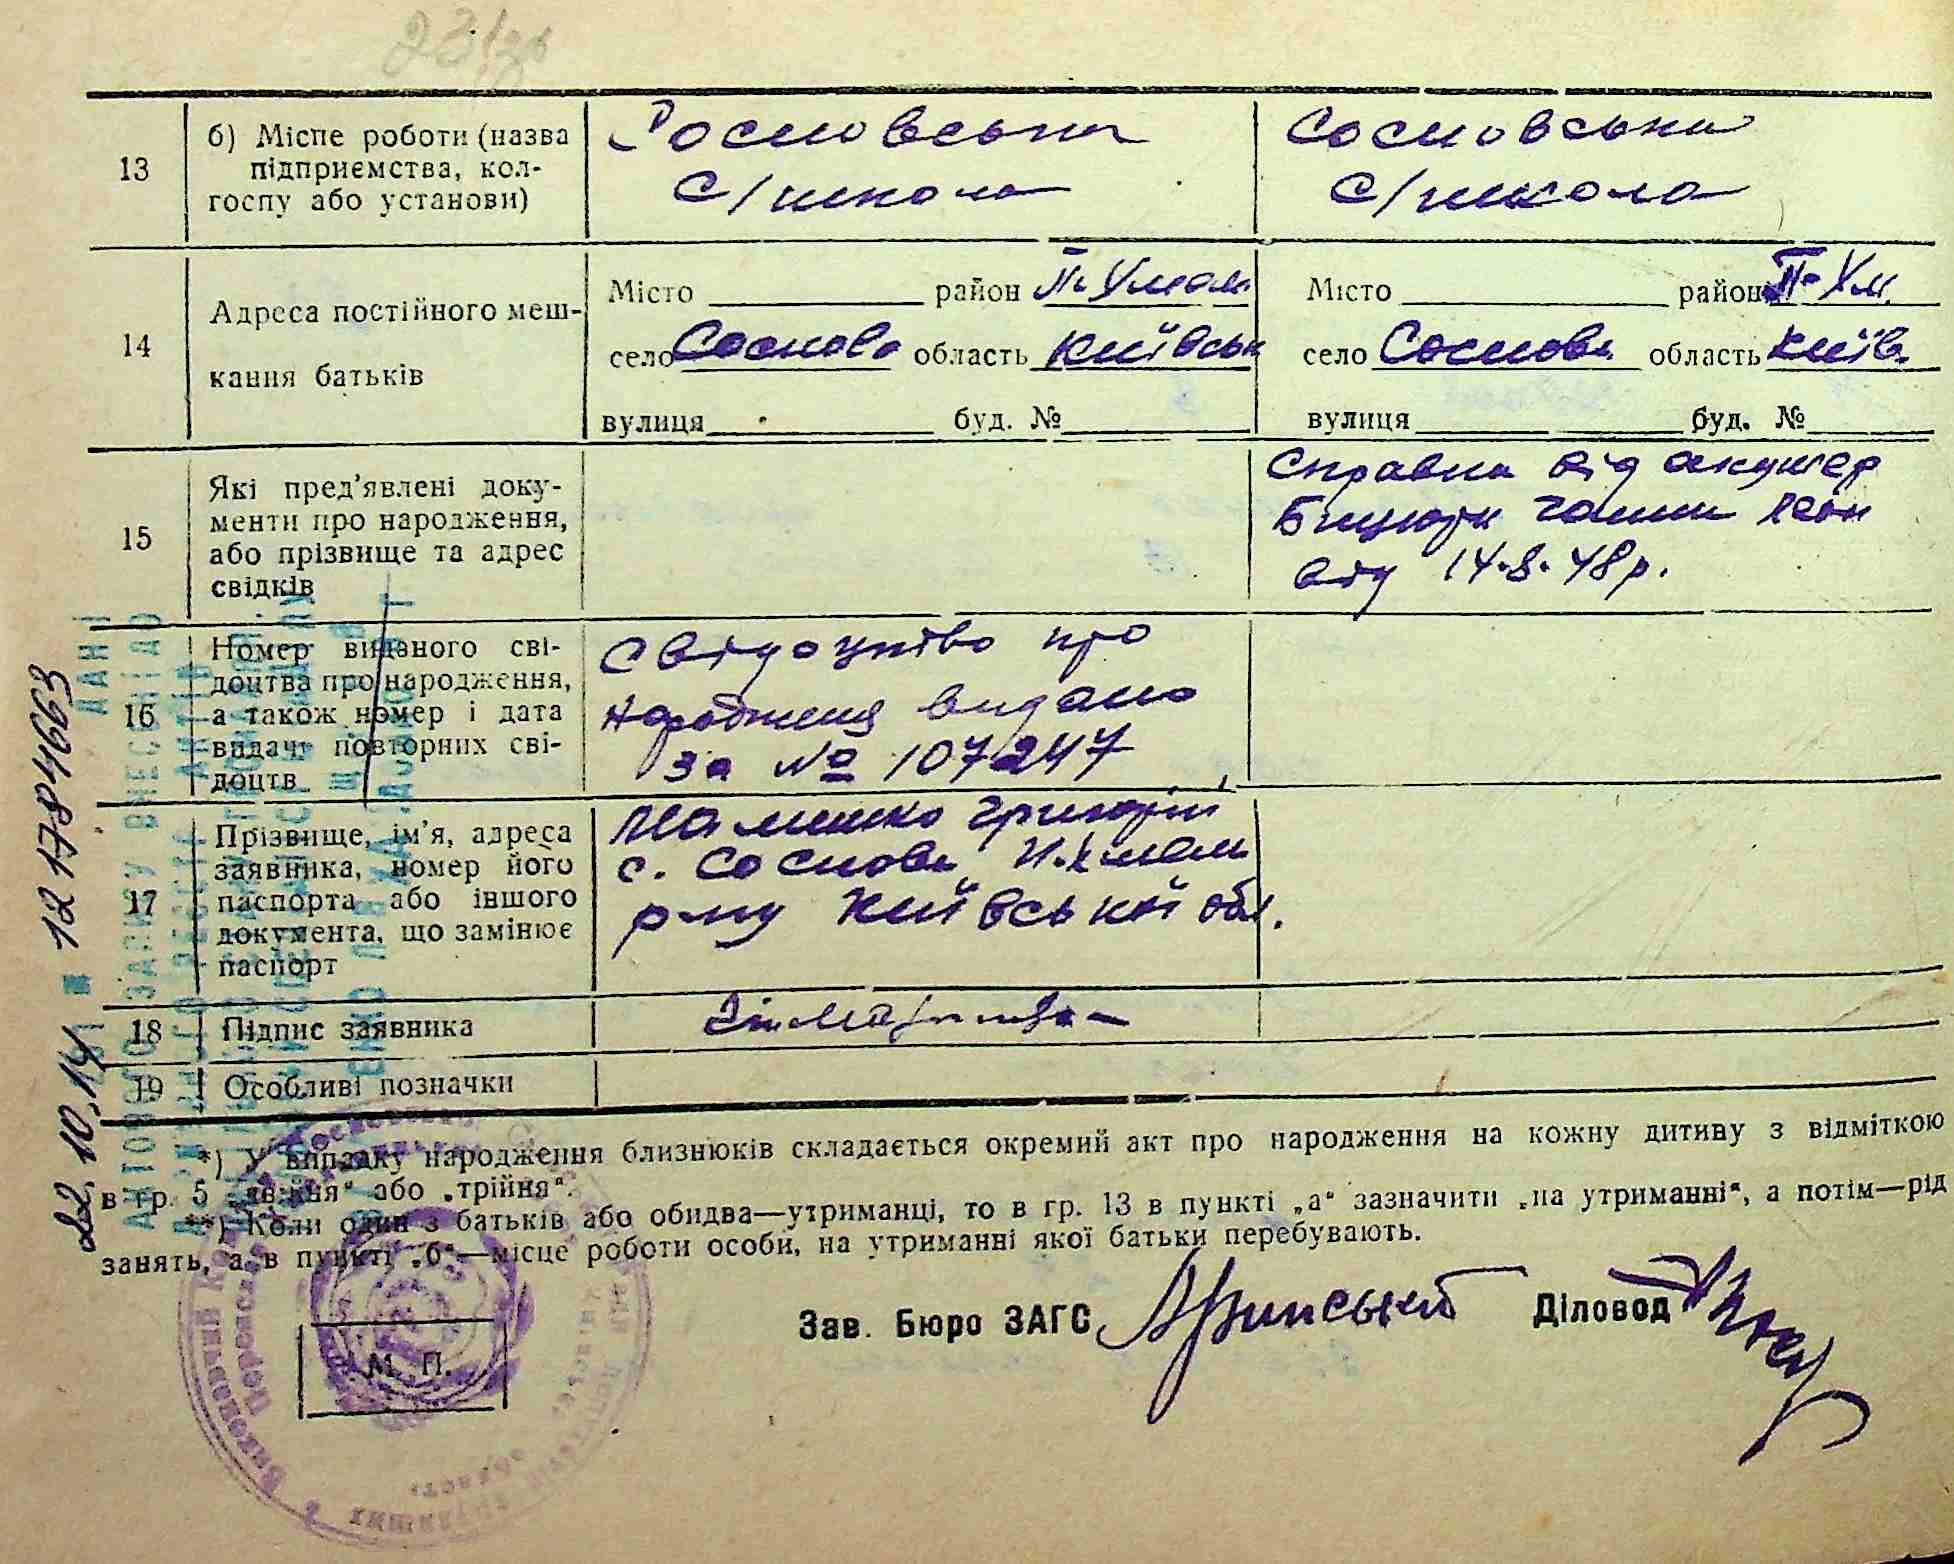 13
б) Місце роботи (назва
підприємства, кол-
госпу або установи)
Сосновська
с/школа
Сосновська
с/школа
14
Адреса постійного меш-
кання батьків
Місто район П-Хмел
село Соснова область Київськ
вулиця буд. №
Місто район П-Хм.
село Соснова область Київ
вулиця буд. №
15
Які пред’явлені доку-
менти про народження,
або прізвище та адрес
свідків
Справка від акушер
від 14.8.48р.
16
Номер виданого сві-
доцтва про народження,
а також номер і дата
видачі повторних сві-
доцтв
Свідоцтво про
народження видано
за № 107247
17
Прізвище, ім’я, адреса
заявника, номер його
паспорта або іншого
документа, що замінює
паспорт
Григорій
с. Соснова П-Хмел
р-ну Київської обл.
18
Підпис заявника
19
Особливі позначки
*) У випадку народження близнюків складається окремий акт про народження на кожну дитину з відміткою
в гр. 5 „двійня“ або „трійня“.
**) Коли один з батьків або обидва—утриманці, то в гр. 13 в пункті „а“ зазначити „на утриманні“, а потім—рід
занять, а в пункті „б“—місце роботи особи, на утриманні якої батьки перебувають.
Зав. Бюро ЗАГС
Діловод
М. П.
22.10.14 № 121784663